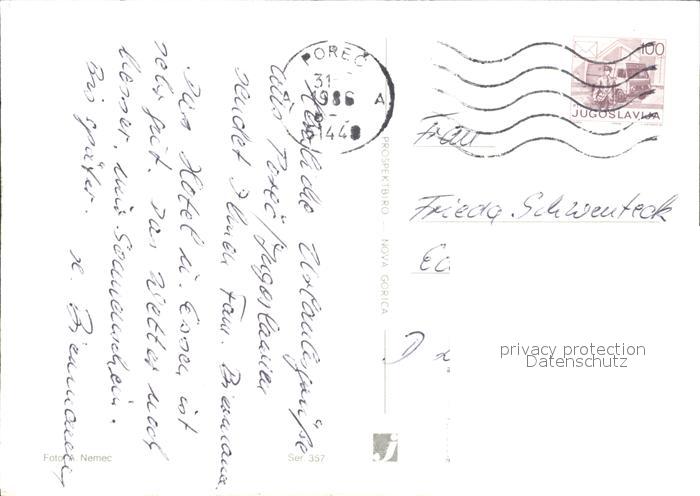 Herzliche Urlaubsgrüße
aus Poreč/Jugoslavien
sendet Ihnen Fam. Biermann.
Das Hotel u. Essen ist
sehr gut. Das Wetter noch
besser, nur Sonnenschein.
Bis später. H. Biermann
POREČ
31-
1986
A
1448
100
JUGOSLAVIJA
Frau
Frieda Schwenteck
D
PROSPEKTBIRO — NOVA GORICA
privacy protection
Datenschutz
Foto: A. Nemec
Ser. 357